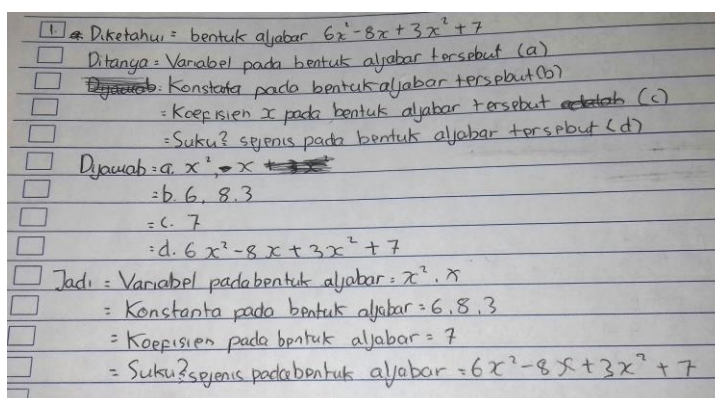 1. Diketahui = bentuk aljabar 6x² - 8x + 3x² + 7
Ditanya = Variabel pada bentuk aljabar tersebut (a)
: Konstata pada bentuk aljabar tersebut (b)
= Koefisien x pada bentuk aljabar tersebut (c)
= Suku² sejenis pada bentuk aljabar tersebut (d)
Dijawab = a. x², x
= b. 6, 8, 3
= c. 7
= d. 6x² - 8x + 3x² + 7
Jadi = Variabel pada bentuk aljabar = x², x
= Konstanta pada bentuk aljabar = 6, 8, 3
= Koefisien pada bentuk aljabar = 7
= Suku² sejenis pada bentuk aljabar = 6x² - 8x + 3x² + 7